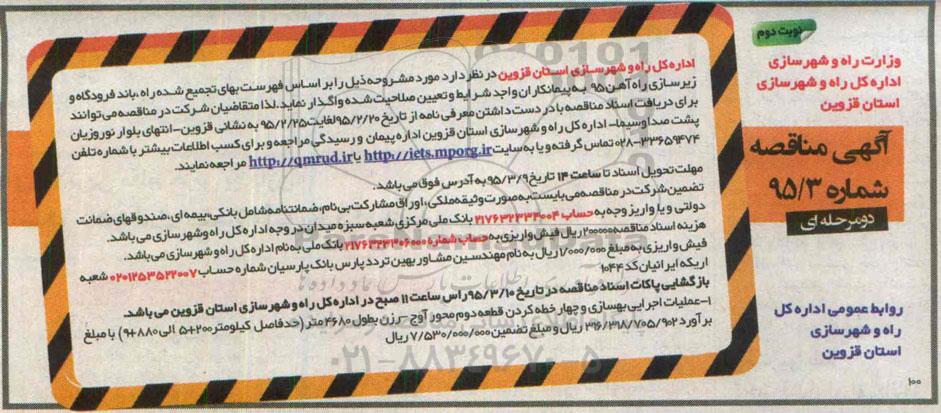 نوبت دوم
وزارت راه و شهرسازی
اداره کل راه و شهرسازی
استان قزوین
آگهی مناقصه
شماره ۹۵/۳
دو مرحله ای
اداره کل راه و شهرسازی استان قزوین در نظر دارد مورد مشروحه ذیل را بر اساس فهرست بهای تجمیع شده راه، باند فرودگاه و
زیرسازی راه آهن ۹۵ به پیمانکاران واجد شرایط و تعیین صلاحیت شده واگذار نماید. لذا متقاضیان شرکت در مناقصه می توانند
برای دریافت اسناد مناقصه با در دست داشتن معرفی نامه از تاریخ ۹۵/۲/۲۰ لغایت ۹۵/۲/۲۵ به نشانی قزوین-انتهای بلوار نوروزیان
پشت صدا و سیما- اداره کل راه و شهرسازی استان قزوین اداره پیمان و رسیدگی مراجعه و برای کسب اطلاعات بیشتر با شماره تلفن
۰۲۸-۳۳۶۵۹۴۷۴ تماس گرفته و یا به سایت http://iets.mporg.ir یا http://qmrud.ir مراجعه نمایند.
مهلت تحویل اسناد تا ساعت ۱۴ تاریخ ۹۵/۳/۹ به آدرس فوق می باشد.
تضمین شرکت در مناقصه می بایست به صورت وثیقه ملکی، اوراق مشارکت بی نام، ضمانتنامه شامل بانکی، بیمه ای، صندوقهای ضمانت
دولتی و یا واریز وجه به حساب ۲۱۷۶۳۲۳۳۴۰۰۴ بانک ملی مرکزی شعبه سبزه میدان در وجه اداره کل راه و شهرسازی می باشد.
هزینه اسناد مناقصه ۲۰۰۰۰۰ ریال فیش واریزی به حساب شماره ۲۱۷۶۳۲۳۳۰۶۰۰۰ بانک ملی به نام اداره کل راه و شهرسازی می باشد.
فیش واریزی به مبلغ ۱/۰۰۰/۰۰۰ ریال به نام مهندسین مشاور بهین تردد پارس بانک پارسیان شماره حساب ۰۲۰۱۲۵۳۵۲۲۰۰۷ شعبه
اریکه ایرانیان کد ۱۰۴۴
بازگشایی پاکات اسناد مناقصه در تاریخ ۹۵/۳/۱۰ راس ساعت ۱۱ صبح در اداره کل راه و شهرسازی استان قزوین می باشد.
۱-عملیات اجرایی بهسازی و چهار خطه کردن قطعه دوم محور آوج - رزن بطول ۴۶۸۰ متر (حدفاصل کیلومتر ۵+۲۰۰ الی ۹+۸۸۰) با مبلغ
برآورد ۳۱۶/۳۱۸/۷۰۵/۹۰۲ ریال و مبلغ تضمین ۷/۵۳۰/۰۰۰/۰۰۰ ریال
روابط عمومی اداره کل
راه و شهرسازی
استان قزوین
۱۰۰
۰۲۱-۸۸۳۴۹۶۷۰-۵